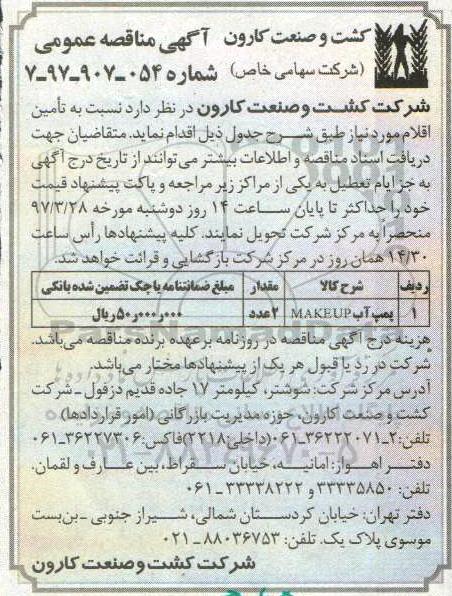 کشت و صنعت کارون
(شرکت سهامی خاص)
آگهی مناقصه عمومی
شماره ۰۵۴-۹۰۷-۹۷-۷
شرکت کشت و صنعت کارون در نظر دارد نسبت به تأمین
اقلام مورد نیاز طبق شرح جدول ذیل اقدام نماید. متقاضیان جهت
دریافت اسناد مناقصه و اطلاعات بیشتر می‌توانند از تاریخ درج آگهی
به جز ایام تعطیل به یکی از مراکز زیر مراجعه و پاکت پیشنهاد قیمت
خود را حداکثر تا پایان ساعت ۱۴ روز دوشنبه مورخه ۹۷/۳/۲۸
منحصراً به مرکز شرکت تحویل نمایند. کلیه پیشنهادها رأس ساعت
۱۴/۳۰ همان روز در مرکز شرکت بازگشایی و قرائت خواهد شد.
ردیف شرح کالا مقدار مبلغ ضمانتنامه یا چک تضمین شده بانکی
۱ پمپ آب MAKEUP ۲عدد ۵۰٫۰۰۰٫۰۰۰ریال
هزینه درج آگهی مناقصه در روزنامه بر عهده برنده مناقصه می‌باشد.
شرکت در رد یا قبول هر یک از پیشنهادها مختار می‌باشد.
آدرس مرکز شرکت: شوشتر، کیلومتر ۱۷ جاده قدیم دزفول - شرکت
کشت و صنعت کارون، حوزه مدیریت بازرگانی (امور قراردادها)
تلفن: ۲-۳۶۲۲۲۰۷۱-۰۶۱(داخلی:۲۲۱۸)فاکس: ۳۶۲۲۷۳۰۶-۰۶۱
دفتر اهواز: امانیه، خیابان سقراط، بین عارف و لقمان.
تلفن: ۳۳۳۳۵۸۵۰ و ۳۳۳۳۸۲۲۲-۰۶۱
دفتر تهران: خیابان کردستان شمالی، شیراز جنوبی - بن‌بست
موسوی پلاک یک. تلفن: ۸۸۰۳۶۷۵۳-۰۲۱
شرکت کشت و صنعت کارون